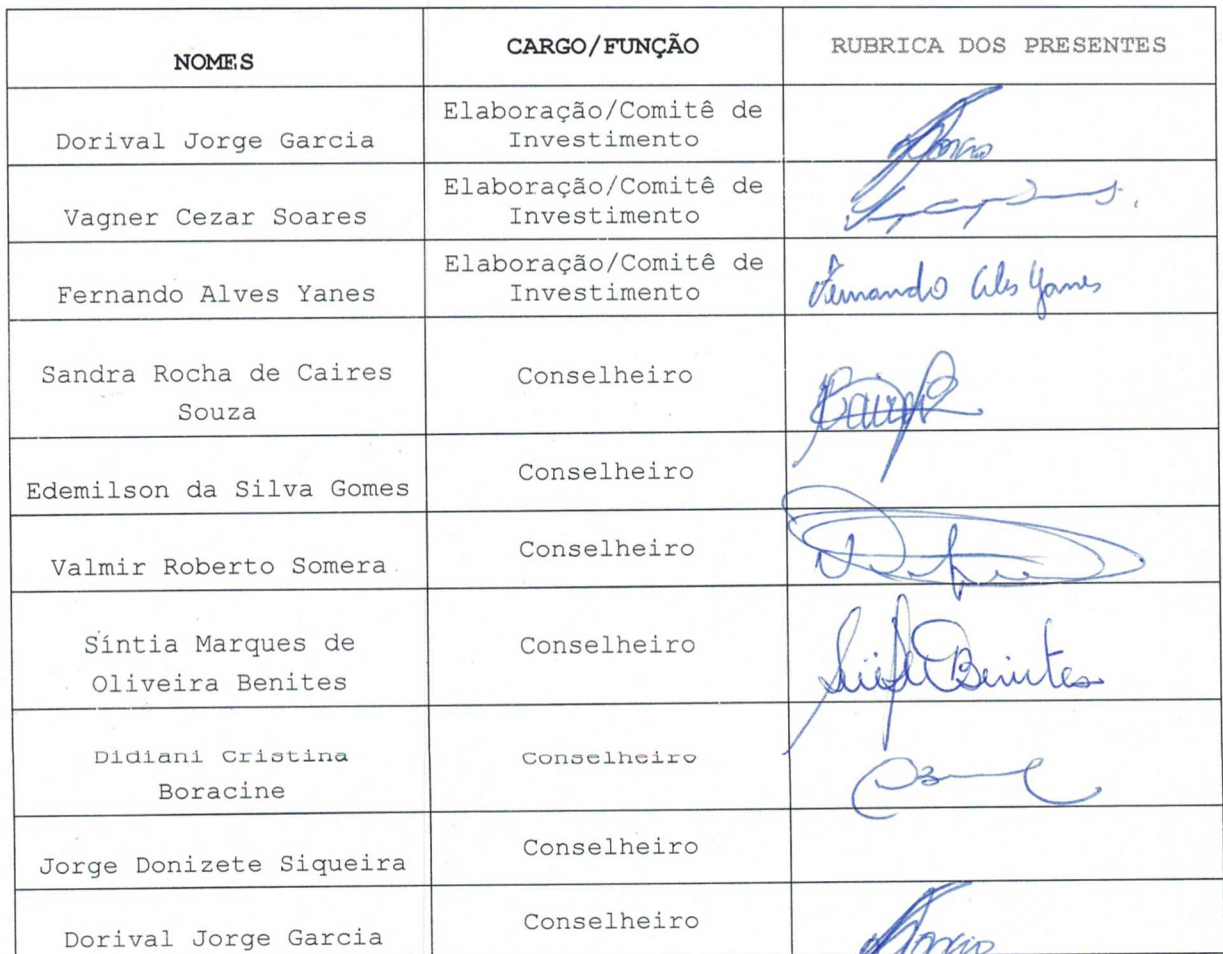 NOMES CARGO/FUNÇÃO RUBRICA DOS PRESENTES
Dorival Jorge Garcia Elaboração/Comitê de
Investimento
Vagner Cezar Soares Elaboração/Comitê de
Investimento
Fernando Alves Yanes Elaboração/Comitê de
Investimento Fernando Yanes
Sandra Rocha de Caires
Souza Conselheiro
Edemilson da Silva Gomes Conselheiro
Valmir Roberto Somera Conselheiro
Síntia Marques de
Oliveira Benites Conselheiro Benites
Didiani Cristina
Boracine Conselheiro
Jorge Donizete Siqueira Conselheiro
Dorival Jorge Garcia Conselheiro